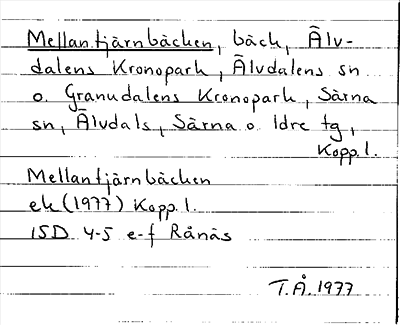 Mellantjärnbäcken, bäck, Älv-
dalens Kronopark, Älvdalens sn
o. Granudalens Kronopark, Särna
sn, Älvdals, Särna o. Idre tg,
Kopp.l.
Mellantjärnbäcken
ek (1977) Kopp.l.
15D 4-5 e-f Rånäs
T.Å. 1977